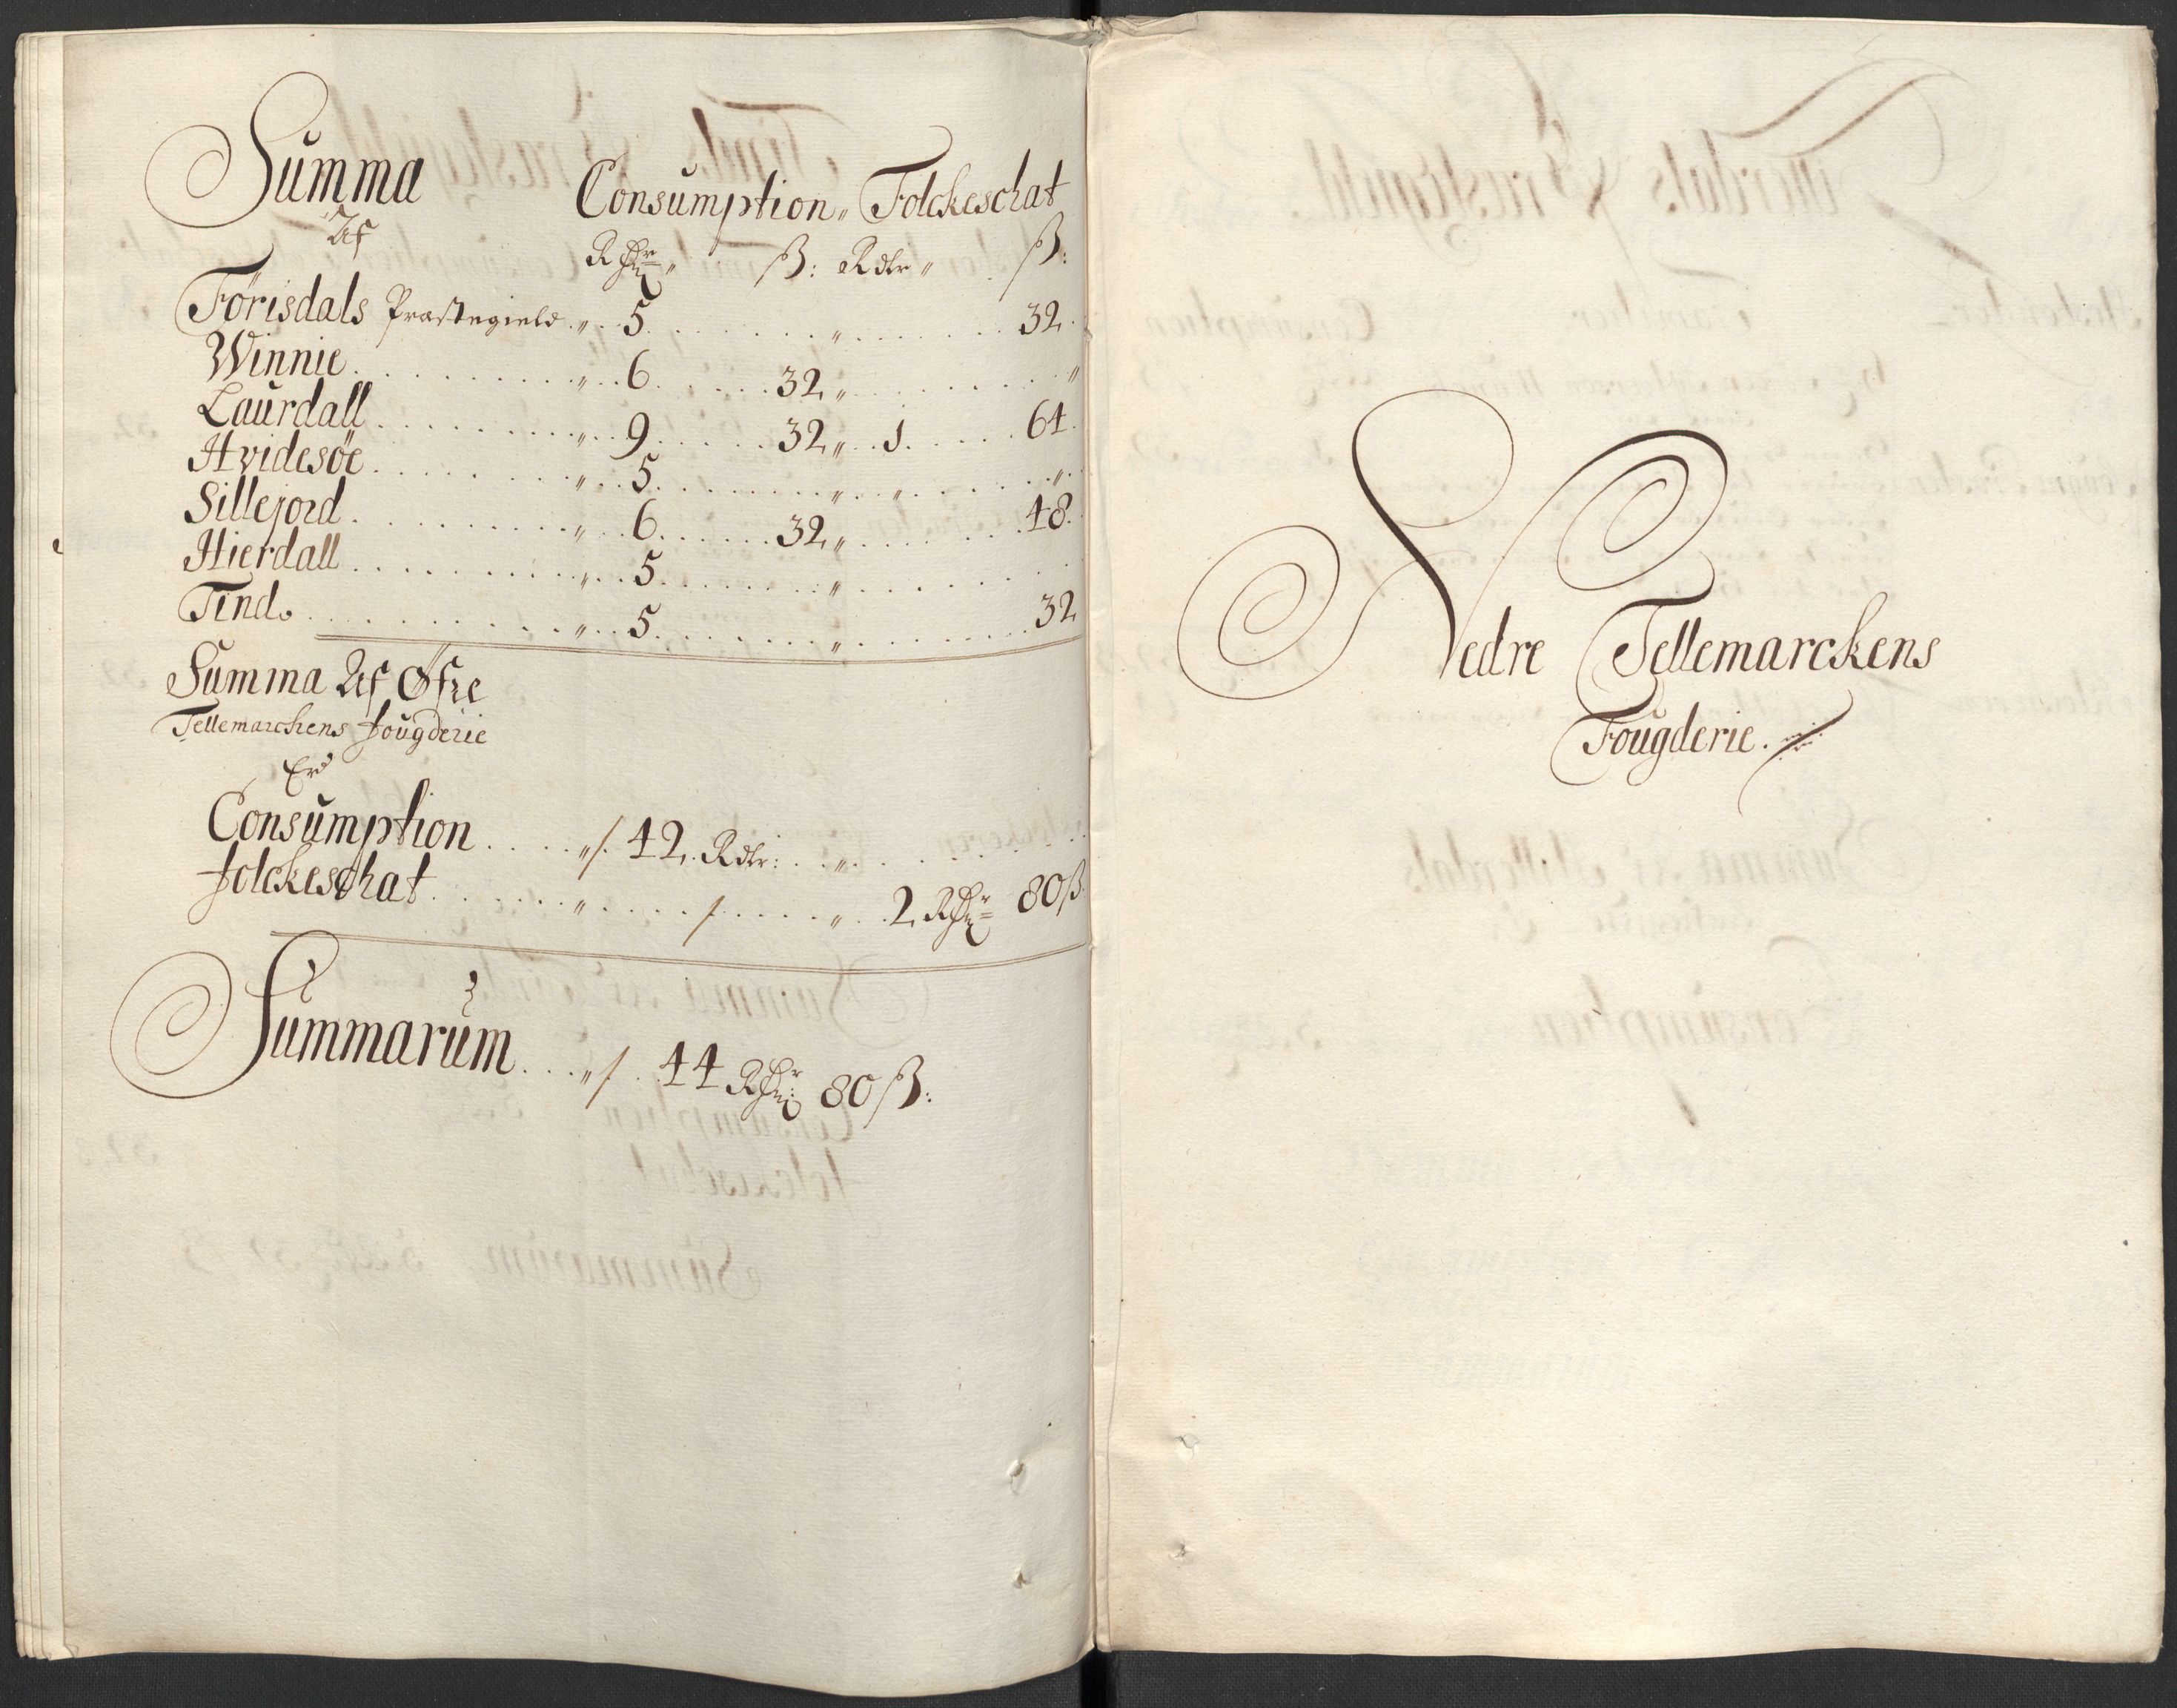 Summa Consumption „ Folckeschat
Af Rdlr „ ß: Rdlr „ ß:
Forisdals Præstegield „ 5 „ 32
Winnie „ 6 32 „ „
Laurdall „ 9 32 „ 1 64
Hvidesöe „ 5 „ „ „
Sillejord „ 6 32 „ 48
Hierdall „ 5 „
Tind „ 5 „ 32
Summa Af Øfre
Tellemarchens Fougderie
Er
Consumption „ /. 42 Rdlr: „
Folckeschat „ /. „ 2 Rdlr 80 ß
Summarum „ /. 44 Rdlr: 80 ß:
Nedre Tellemarckens
Fougderie.